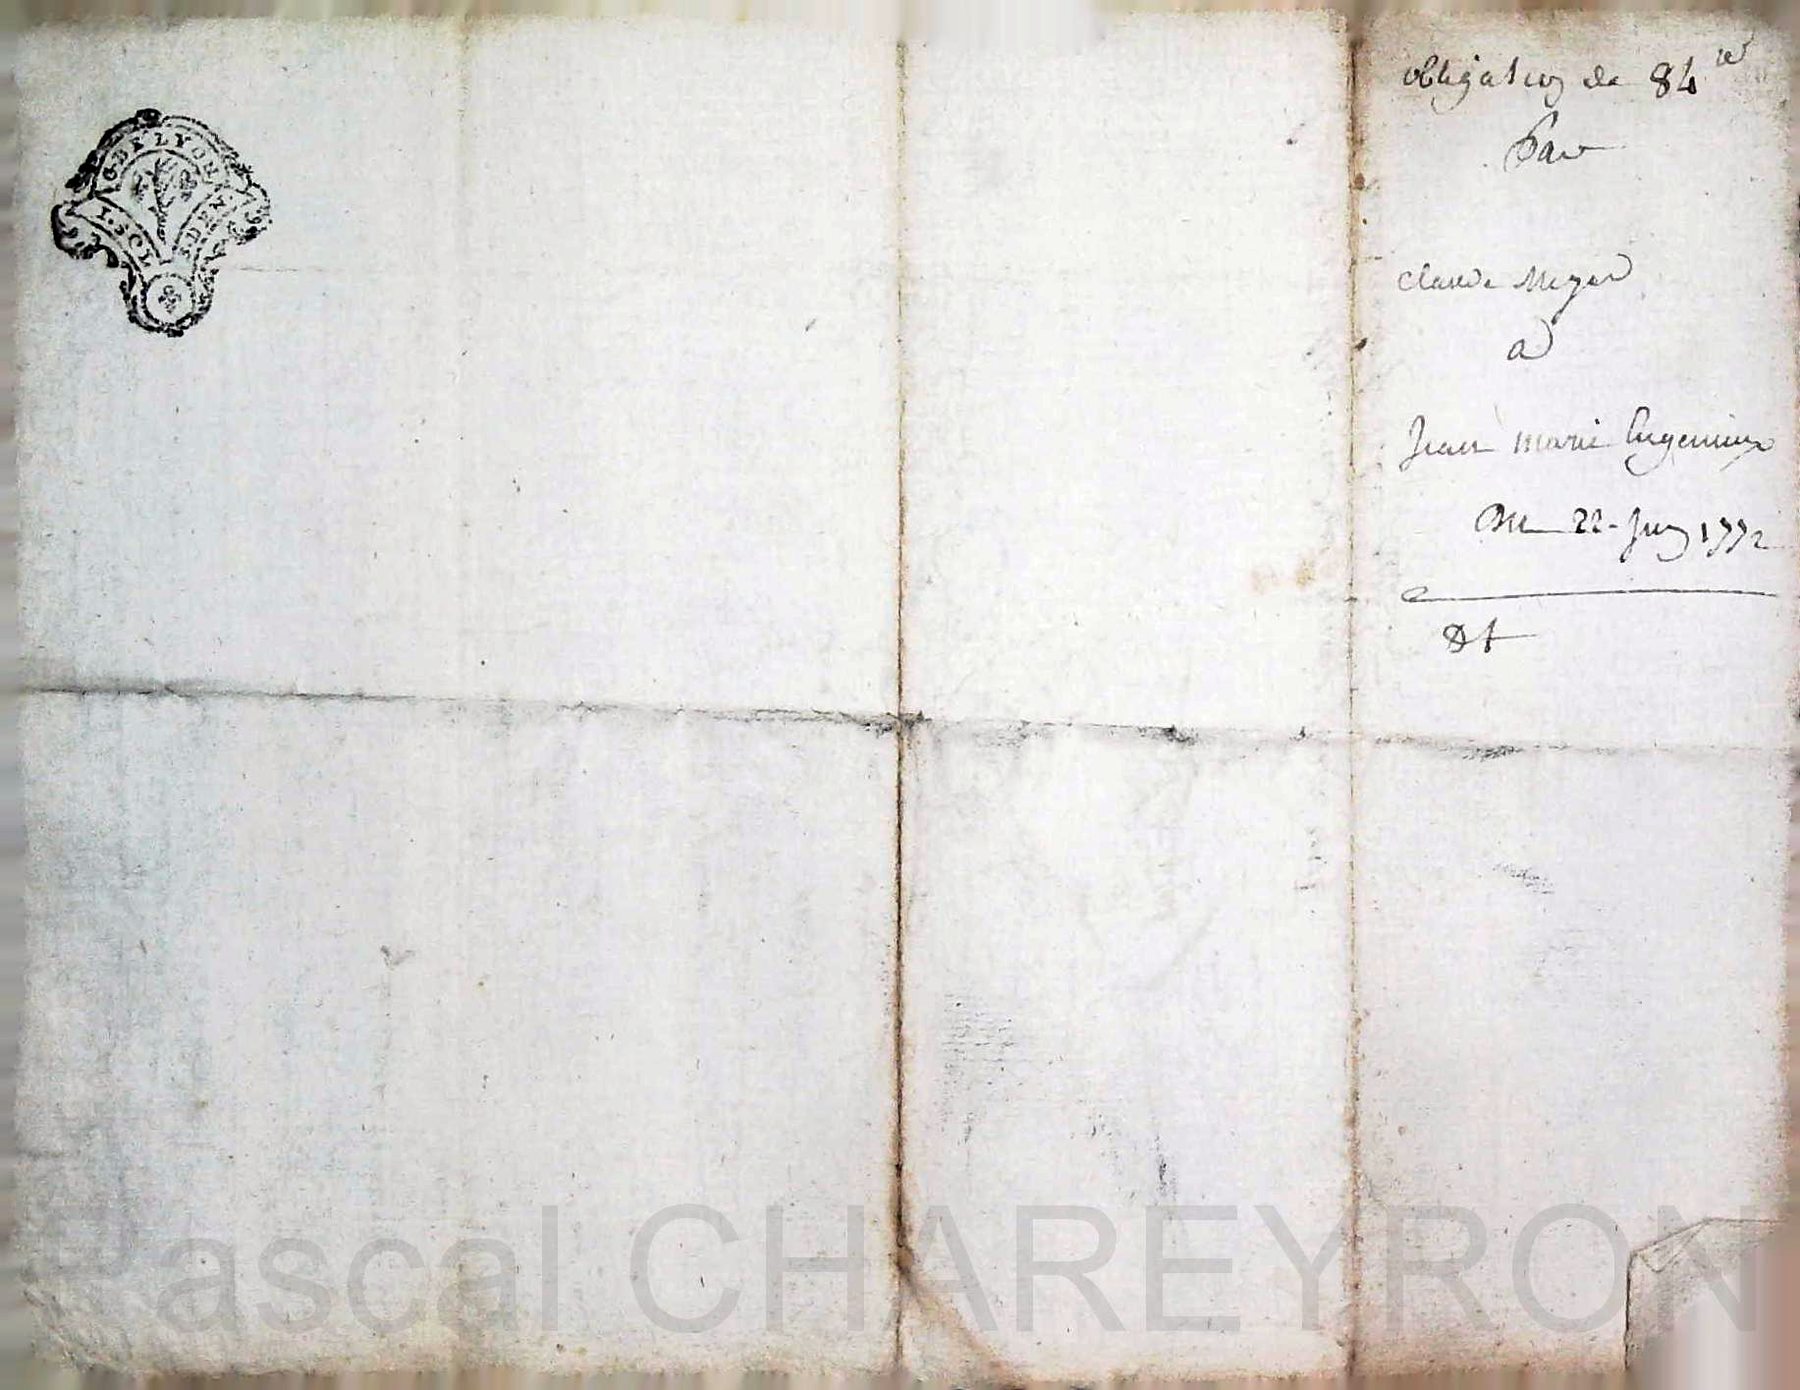 G. DE LYON
1. SOL
S. DEN.
obligation de 84 ₶
Par
Claude Meyer
a
Jean marie Ingenieux
Du 22 Juin 1772
Pascal CHAREYRON